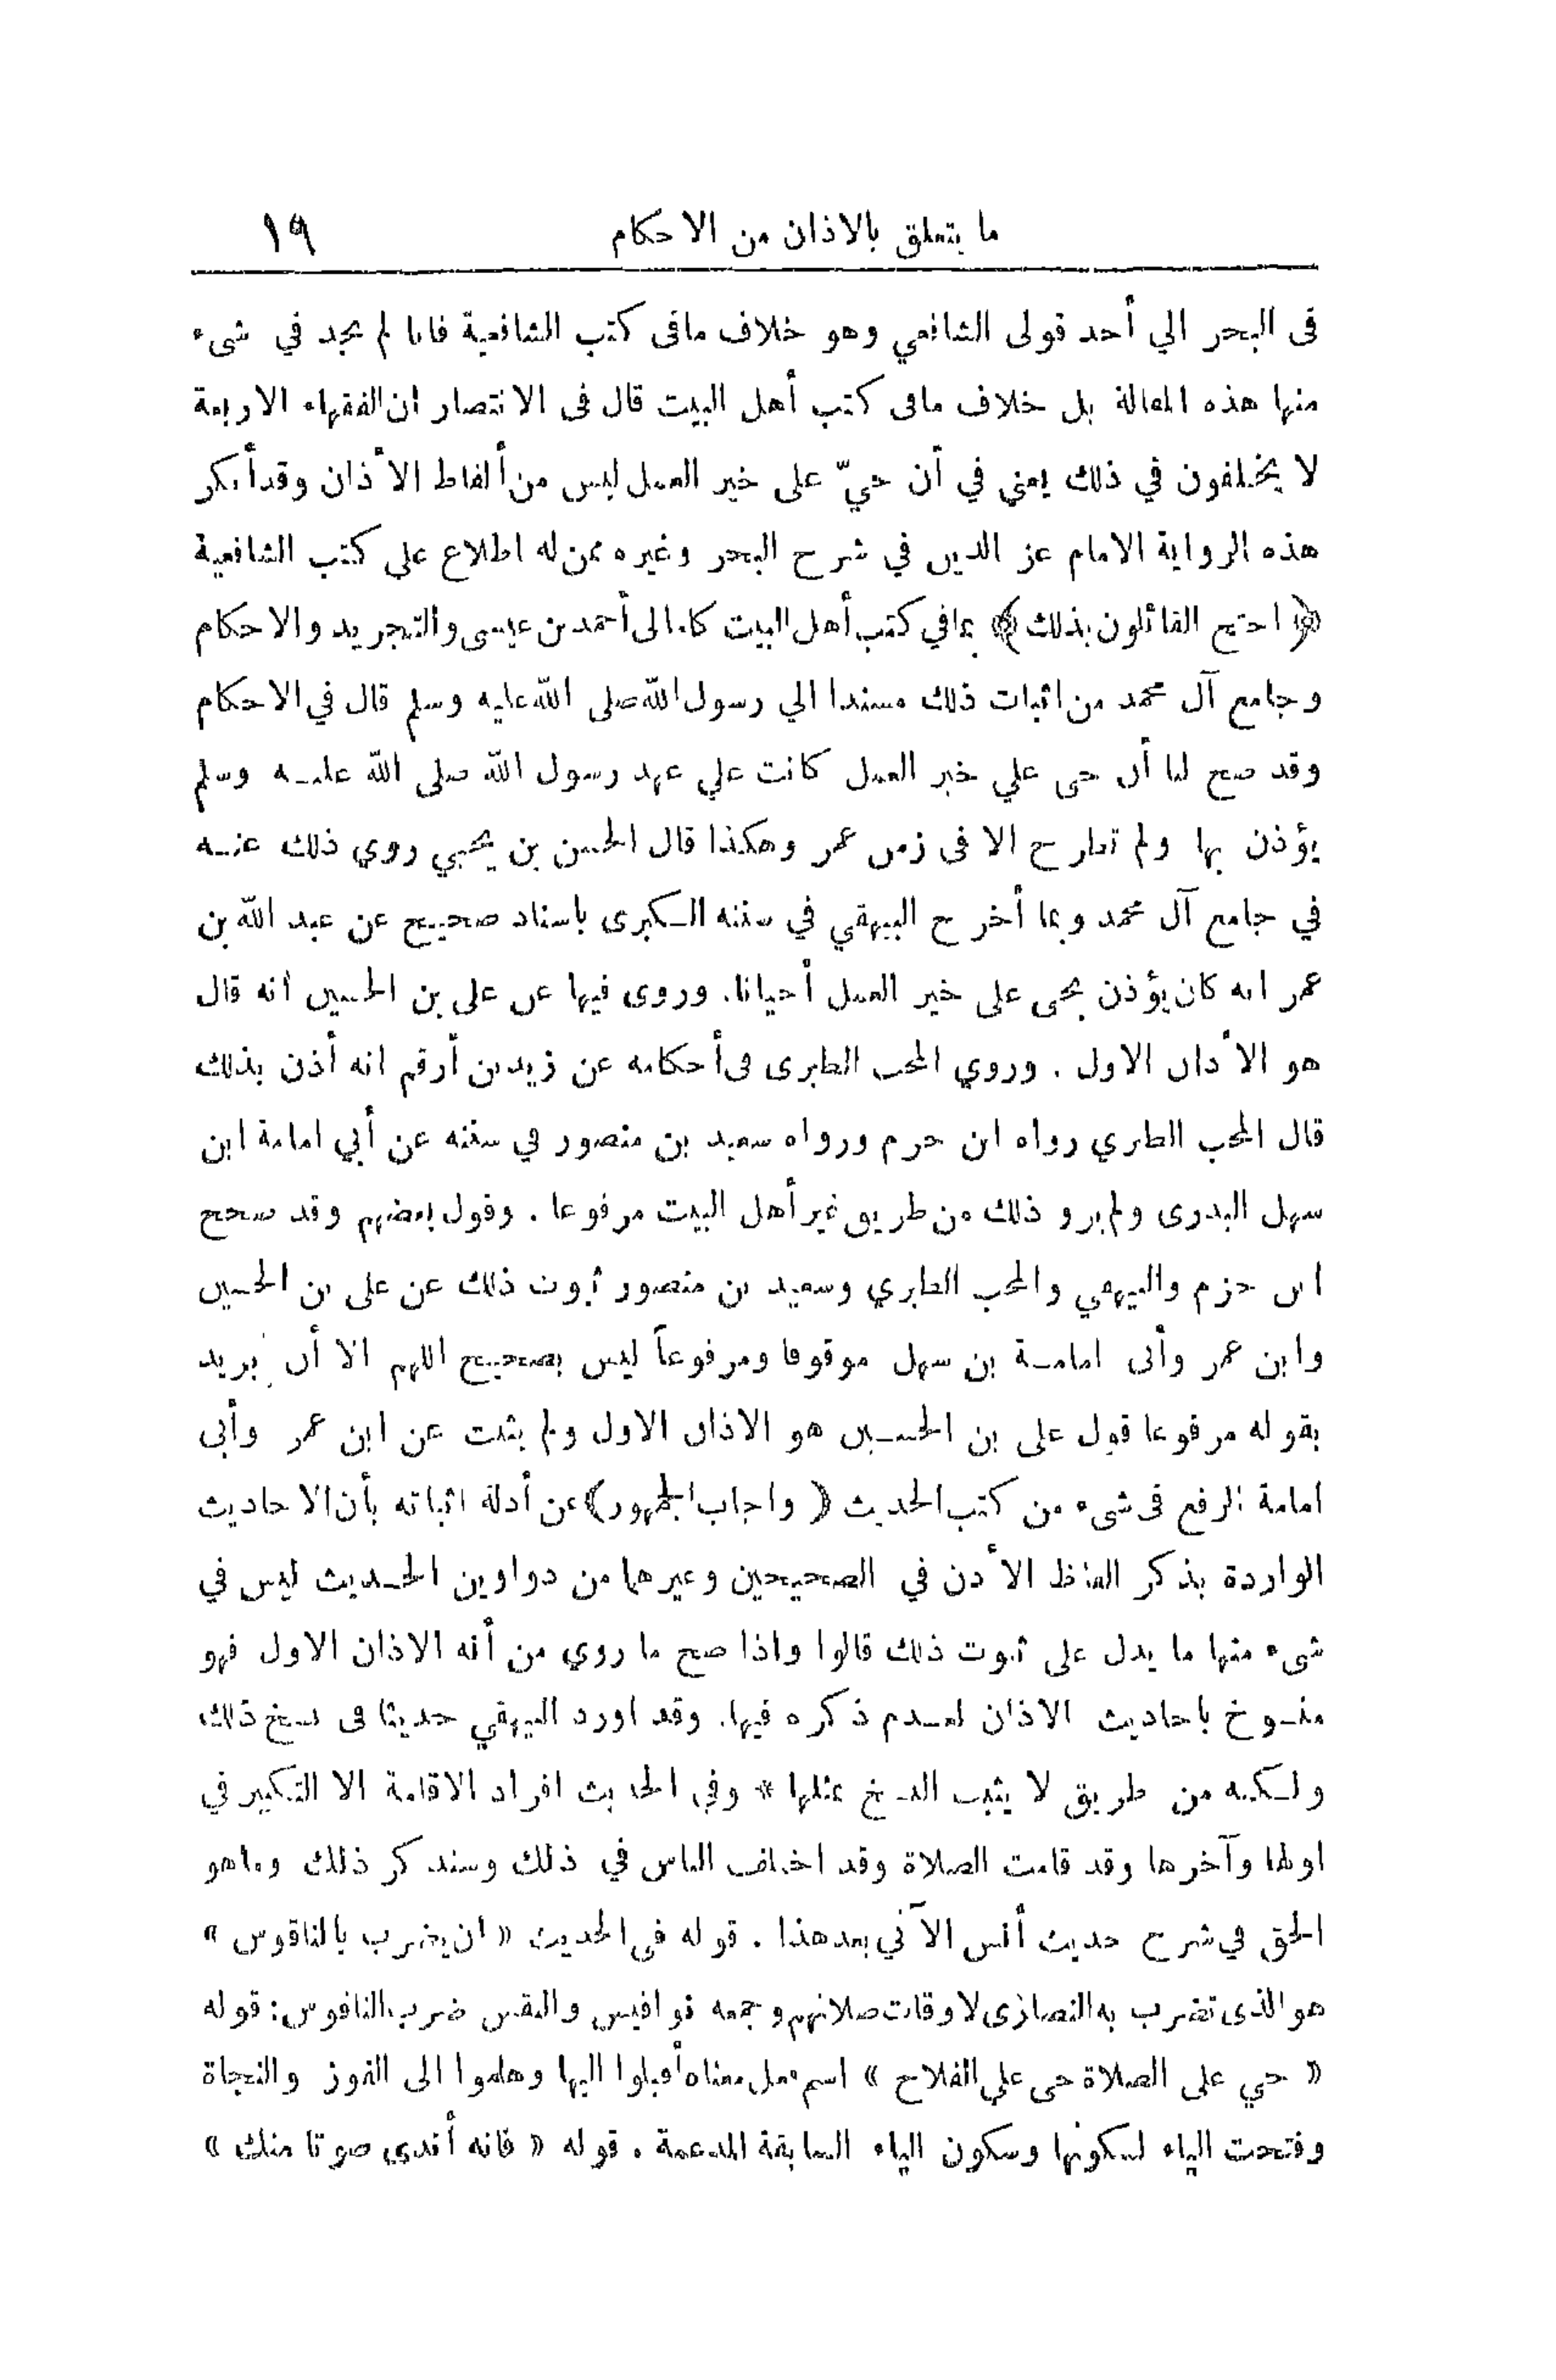 ما يتعلق بالاذان من الاحكام ١٩
فى البحر الي أحد قولى الشافعي وهو خلاف مافى كتب الشافعية فانا لم نجد في شىء
منها هذه المقالة بل خلاف مافى كتب أهل البيت قال فى الانتصار ان الفقهاء الاربعة
لا يختلفون في ذلك يعني في أن حيّ على خير العمل ليس من ألفاظ الأذان وقد أنكر
هذه الرواية الامام عز الدين في شرح البحر وغيره ممن له اطلاع على كتب الشافعية
﴿ احتج القائلون بذلك ﴾ بما في كتب أهل البيت كامالى أحمد بن عيسى والتجريد والاحكام
وجامع آل محمد من اثبات ذلك مسندا الي رسول الله صلى الله عليه وسلم قال في الاحكام
وقد صح لنا أن حى علي خير العمل كانت علي عهد رسول الله صلى الله عليه وسلم
يؤذن بها ولم تطرح الا فى زمن عمر وهكذا قال الحسن بن يحيي روي ذلك عنه
في جامع آل محمد وبما أخرج البيهقي في سننه الكبرى باسناد صحيح عن عبد الله بن
عمر انه كان يؤذن بحى على خير العمل أحيانا. وروى فيها عن على بن الحسين أنه قال
هو الأذان الاول . وروي المحب الطبرى فى أحكامه عن زيد بن أرقم انه أذن بذلك
قال المحب الطبري رواه ابن حزم ورواه سعيد بن منصور في سننه عن أبي امامة ابن
سهل البدرى ولم يرو ذلك من طريق غير أهل البيت مرفوعا . وقول بعضهم وقد صحح
ابن حزم والبيهقي والمحب الطبري وسعيد بن منصور ثبوت ذلك عن على بن الحسين
وابن عمر وأبى امامة بن سهل موقوفا ومرفوعاً ليس بصحيح اللهم الا أن يريد
بقوله مرفوعا قول على بن الحسين هو الاذان الاول ولم يثبت عن ابن عمر وأبى
امامة الرفع فى شىء من كتب الحديث ﴿ واجاب الجمهور ﴾ عن أدلة اثباته بأن الاحاديث
الواردة بذكر الفاظ الأذن في الصحيحين وغيرهما من دواوين الحديث ليس في
شىء منها ما يدل على ثبوت ذلك قالوا واذا صح ما روي من أنه الاذان الاول فهو
منسوخ باحاديث الاذان لعدم ذكره فيها. وقد اورد البيهقي حديثا فى نسخ ذلك
ولكنه من طريق لا يثبت النسخ بمثلها * وفي الحديث افراد الاقامة الا التكبير في
اولها وآخرها وقد قامت الصلاة وقد اختلف الناس في ذلك وسنذكر ذلك وما هو
الحق في شرح حديث أنس الآتي بعد هذا . قوله فى الحديث « ان يضرب بالناقوس »
هو الذى تضرب به النصارى لاوقات صلاتهم وجمعه نواقيس والنقس ضرب الناقوس: قوله
« حي على الصلاة حى على الفلاح » اسم فعل معناه أقبلوا اليها وهلموا الى الفوز والنجاة
وفتحت الياء لسكونها وسكون الياء السابقة المدغمة . قوله « فانه أندى صوتا منك »